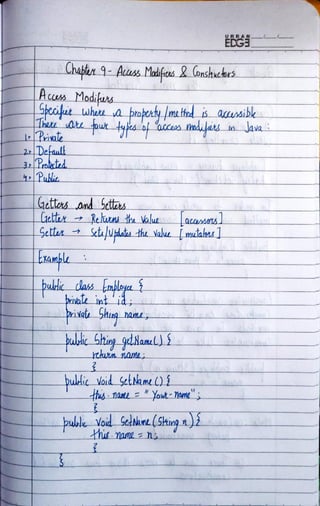 URBAN
EDGE
Chapter 9 - Access Modifiers & Constructors
Access Modifiers
Specifies where a property/method is accessible
There are four types of access modifiers in Java :
1. Private
2. Default
3. Protected
4. Public
Getters and Setters
Getter → Returns the value [accessors]
Setter → Sets/Updates the value [mutators]
Example :
public class Employee {
private int id ;
private String name ;
public String getName() {
return name ;
}
public void setName () {
this. name = " Your-name" ;
}
public void setName (String n) {
this name = n ;
}
}